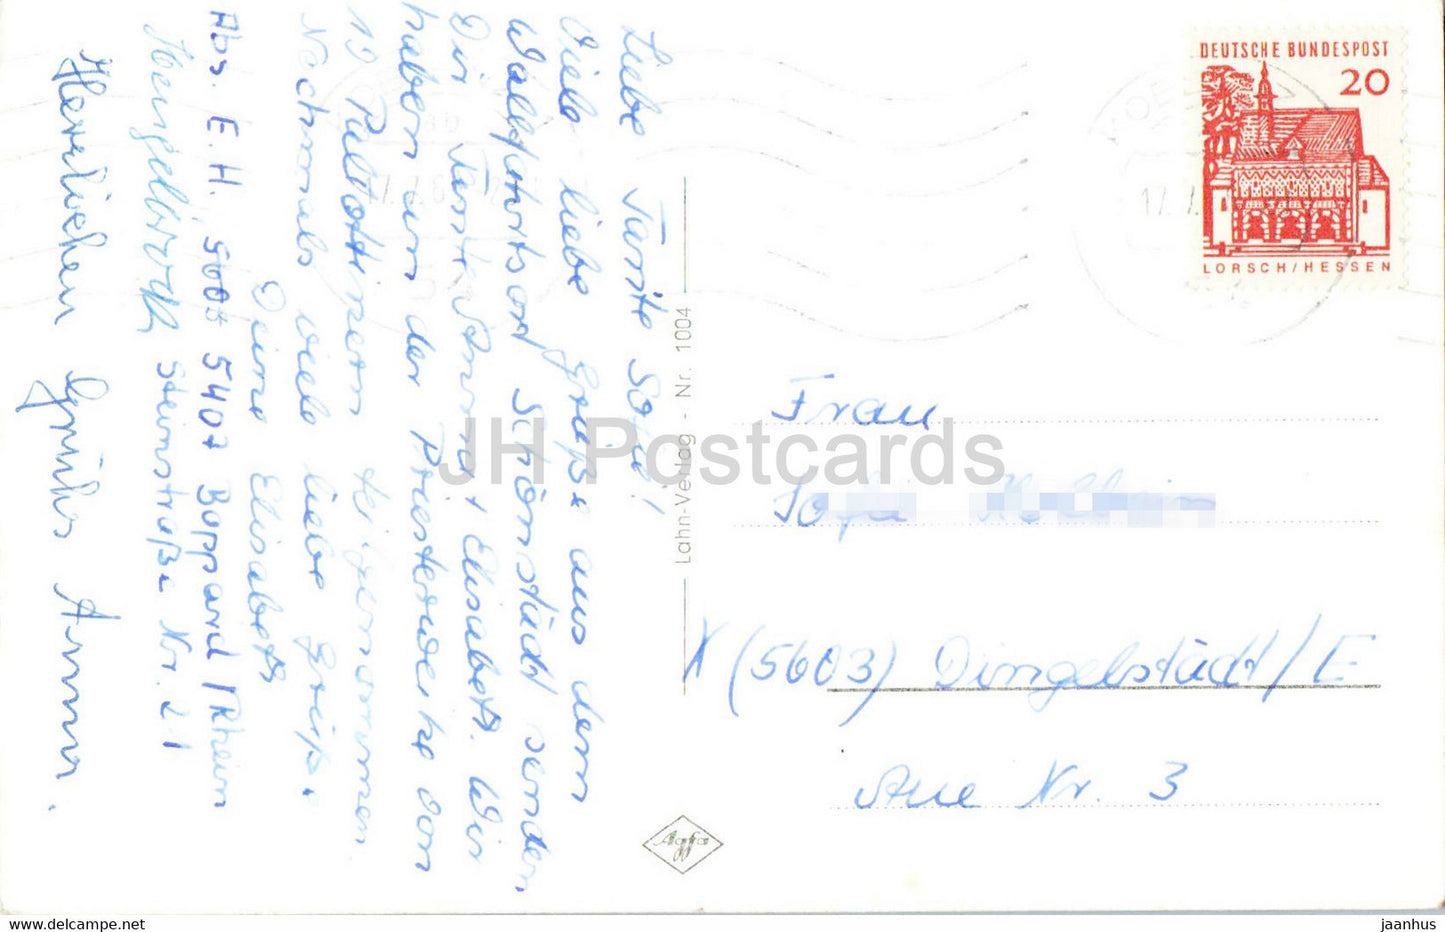 Liebe Tante Sofie!
Viele liebe Grüße aus dem
Wallfahrtsort Schönstadt senden
Dir Tante Anna + Elisabeth. Wir
haben an der Priesterweihe von
19 Pallottinern teilgenommen
Nochmals viele liebe Grüße
Deine Elisabeth
Abs. E. H. 5407 Boppard / Rhein
Steinstraße Nr. 21
Herzlichen Gruß Anna.
Lahn-Verlag - Nr. 1004
Agfa
DEUTSCHE BUNDESPOST
20
LORSCH/HESSEN
17.7.
Frau
Sofie
X (5603) Dingelstädt/E
Aue Nr. 3
JH Postcards
www.delcampe.net
jaanhus